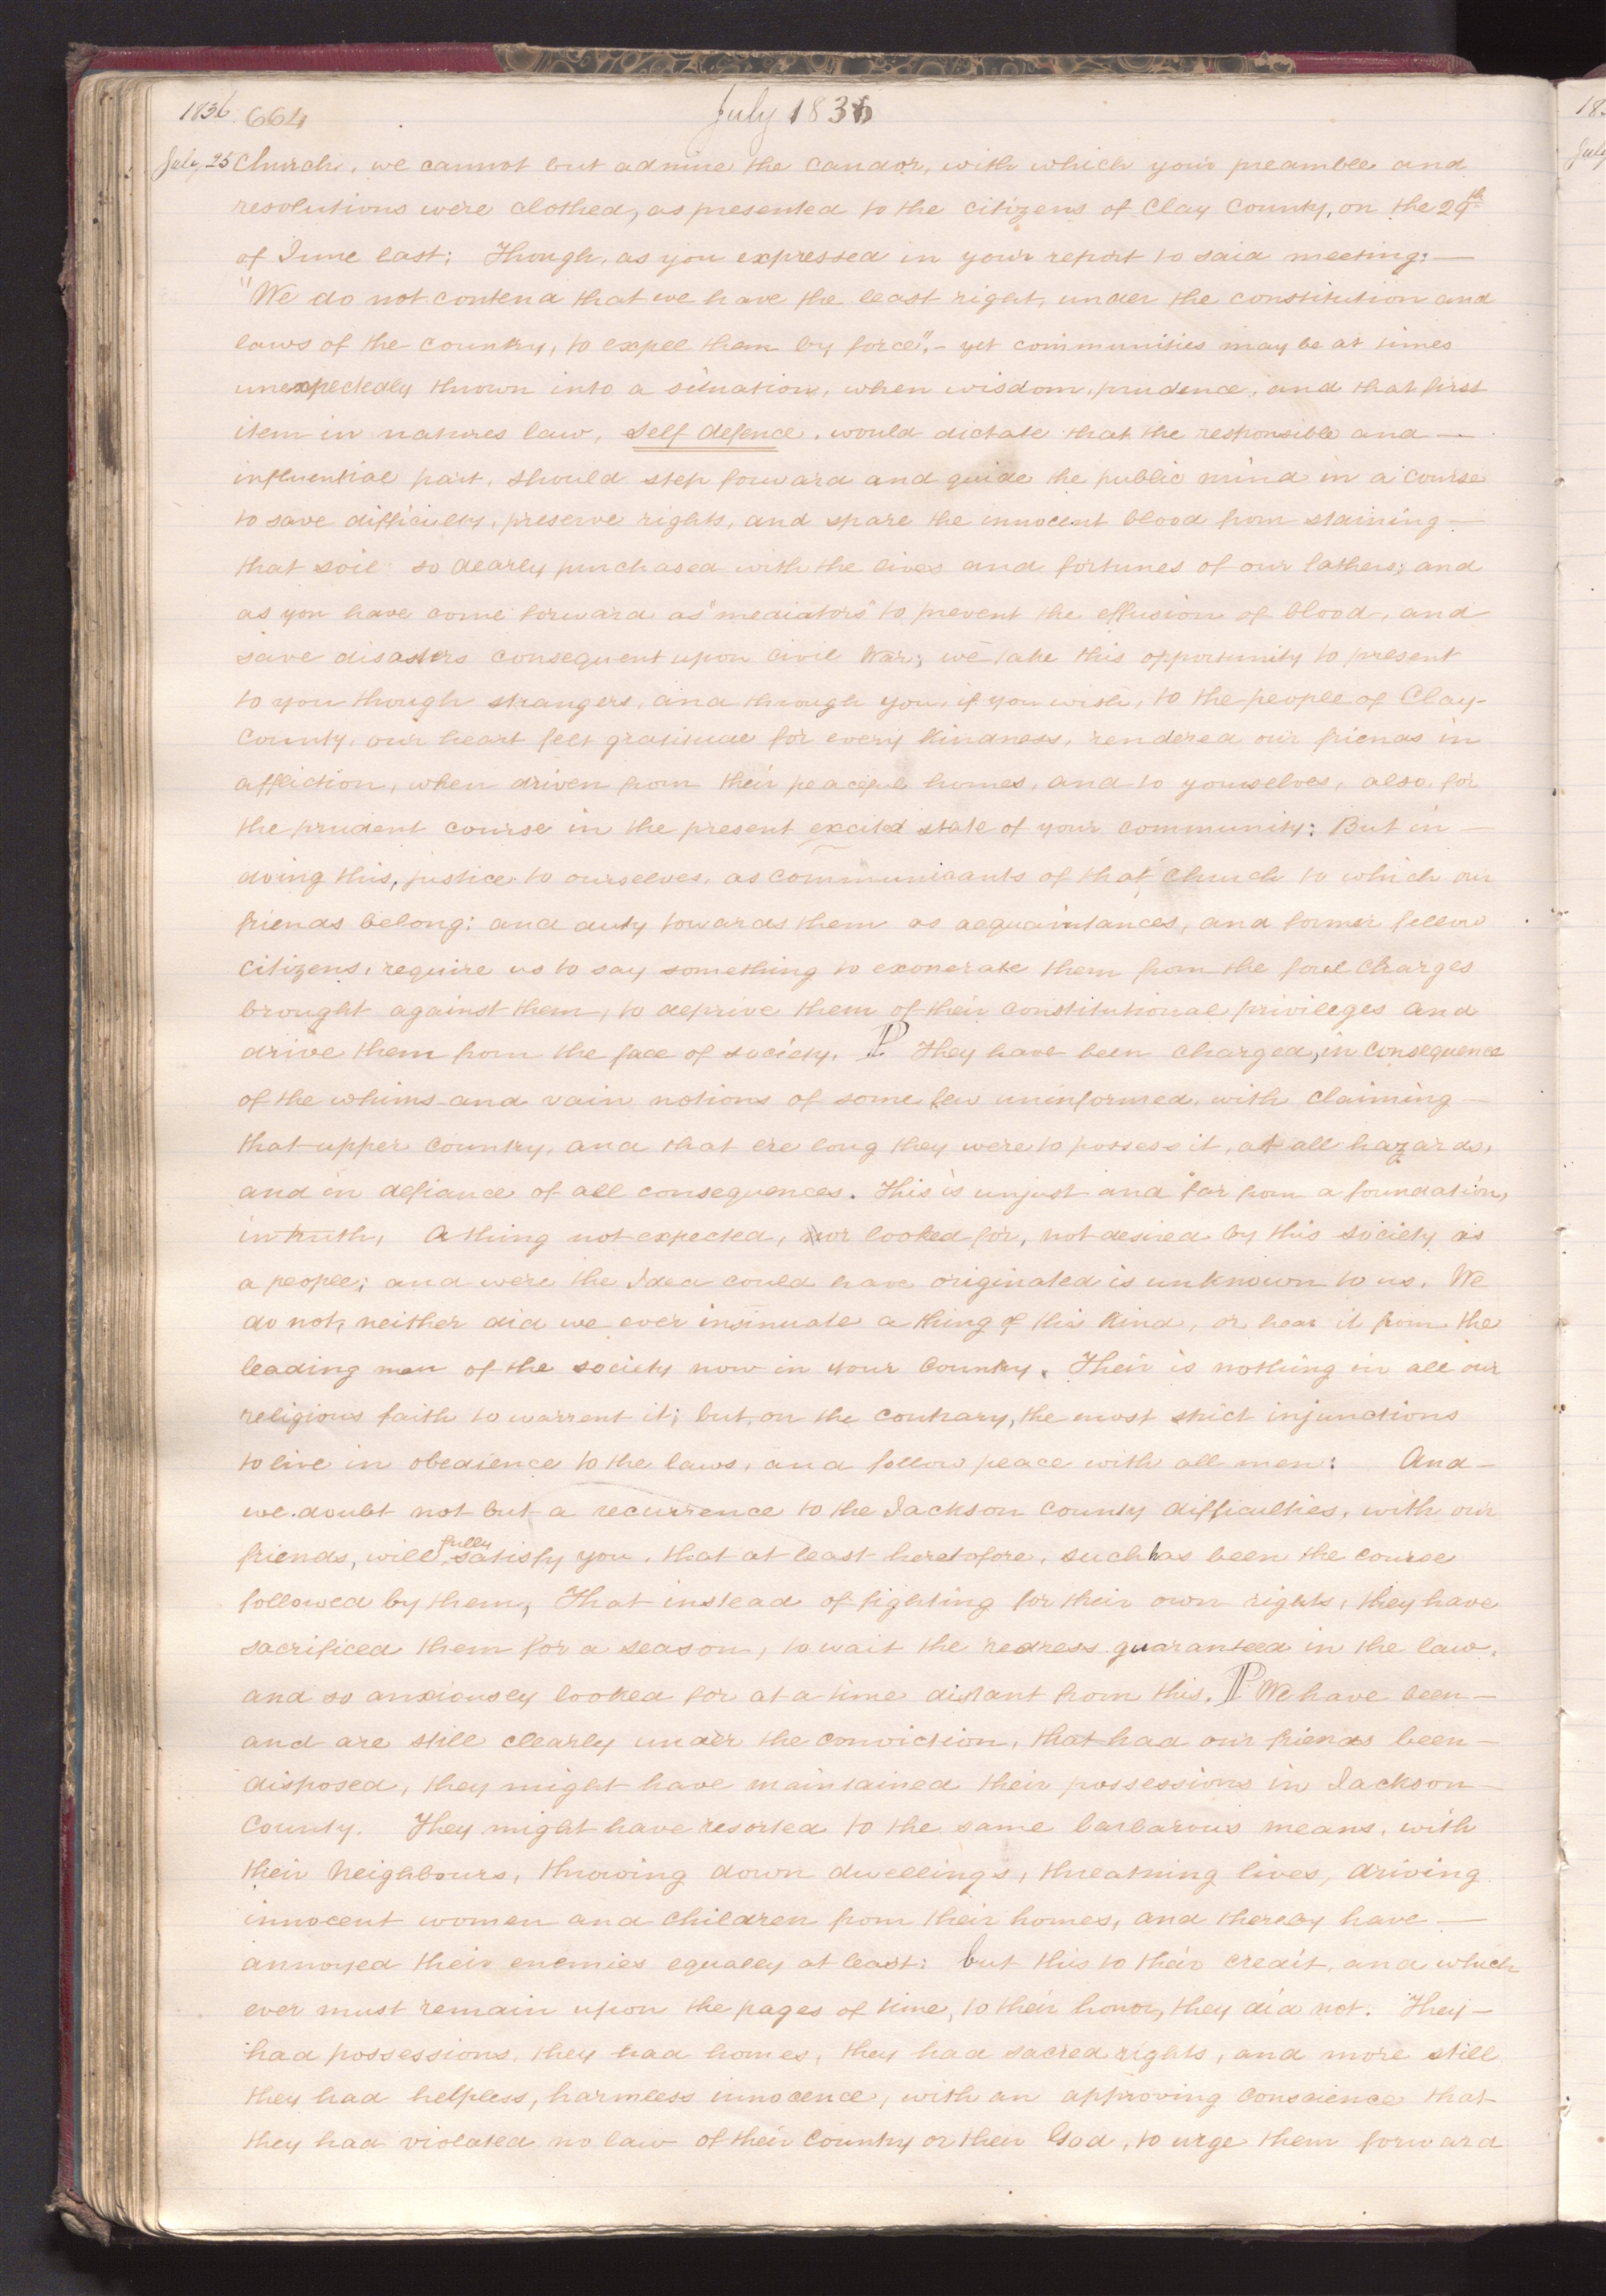 1836 664 July 1836
July, 25 Church, we cannot but admire the candor, with which your preamble and
resolutions were clothed, as presented to the citizens of Clay County, on the 29th
of June last; Though, as you expressed in your report to said meeting:—
"We do not contend that we have the least right, under the constitution and
laws of the country, to expel them by force",- yet communities may be at times
unexpectedly thrown into a situation, when wisdom, prudence, and that first
item in natures law, self defence, would dictate that the responsible and —
influential part, should step forward and guide the public mind in a course
to save difficulty, preserve rights, and spare the innocent blood from staining —
that soil so dearly purchased with the lives and fortunes of our fathers; and
as you have come forward as "mediators" to prevent the effusion of blood, and
save disasters consequent upon civil War; we take this opportunity to present
to you though strangers, and through you, if you wish, to the people of Clay-
County, our heart felt gratitude for every Kindness, rendered our friends in
affliction, when driven from their peaceful homes, and to yourselves, also, for
the prudent course in the present excited state of your community: But in —
doing this, justice to ourselves, as communicants of that church to which our
friends belong; and duty towards them as acquaintances, and former fellow
citizens, require us to say something to exonerate them from the foul charges
brought against them, to deprive them of their constitutional privileges and
drive them from the face of society. P They have been charged, in consequence
of the whims and vain notions of some few uninformed, with claiming —
that upper country, and that ere long they were to possess it, at all hazards,
and in defiance of all consequences. This is unjust and far from a foundation,
in truth, A thing not expected, nor looked for, not desired by this society as
a people; and were the Idea could have originated is unknown to us. We
do not, neither did we ever insinuate a thing of this Kind, or hear it from the
leading men of the society now in your Country. Their is nothing in all our
religious faith to warrent it; but, on the contrary, the most strict injunctions
to live in obedience to the laws, and follow peace with all men: And —
we doubt not but a recurrence to the Jackson County difficulties, with our
friends, will fully satisfy you, that at least heretofore, such has been the course
followed by them, That instead of fighting for their own rights, they have
sacrificed them for a season, to wait the redress guaranteed in the law,
and so anxiously looked for at a time distant from this. P We have been —
and are still clearly under the conviction, that had our friends been —
disposed, they might have maintained their possessions in Jackson —
County. They might have resorted to the same barbarous means, with
their Neighbours, throwing down dwellings, threatning lives, driving
innocent women and children from their homes, and thereby have —
annoyed their enemies equaley at least: but this to their credit, and which
ever must remain upon the pages of time, to their honor, they did not. They —
had possessions, they had homes, they had sacred rights, and more still
they had helpless, harmless innocence, with an approving conscience that
they had violated no law of their Country or their God, to urge them forward
18
July